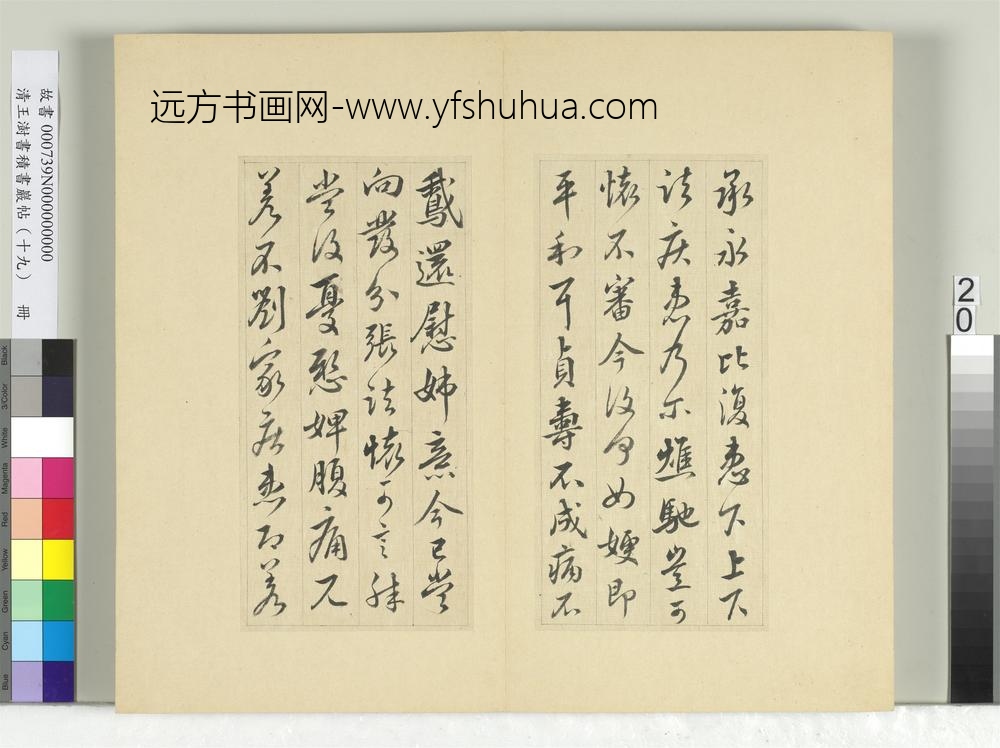 远方书画网-www.yfshuhua.com
承永嘉比復患下上下
諸疾患乃尔燋馳豈可
懷不審今復何如嫂即
平和耳真壽不成病不
鵝還慰姊意今已當
向發分張諸懷可言殊
當復憂愁婢腹痛兄
差不劉家疾患即差
故書 000739N000000000
清王澍書積書巖帖(十九) 冊
20
Black
3/Color
White
Magenta
Red
Yellow
Green
Cyan
Blue